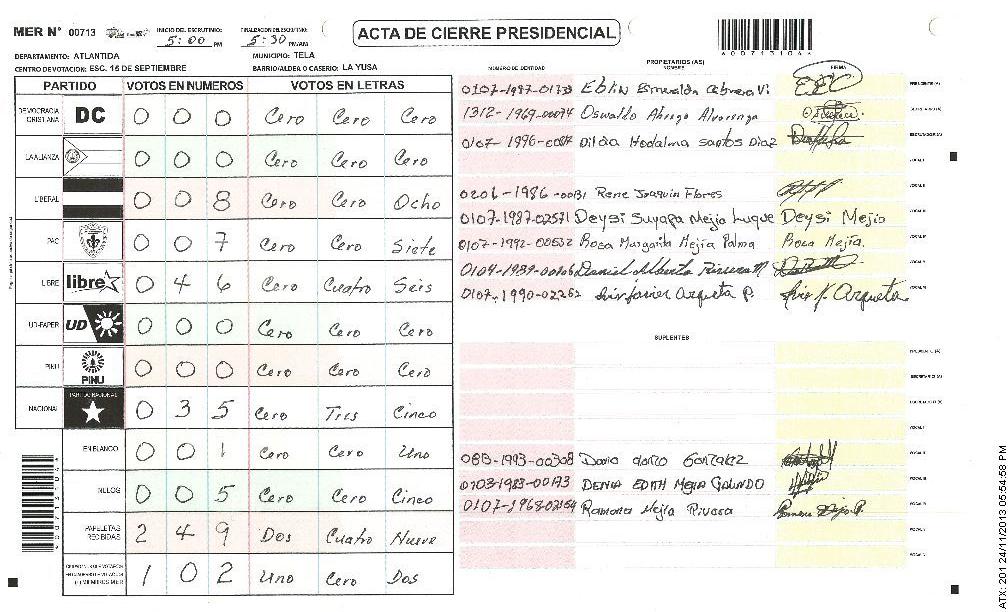 MER N° 00713
INICIO DEL ESCRUTINIO:
5:00 PM
FINALIZACION DEL ESCRUTINIO:
5:30 PM/AM
ACTA DE CIERRE PRESIDENCIAL
DEPARTAMENTO: ATLANTIDA
MUNICIPIO: TELA
CENTRO DE VOTACION: ESC. 15 DE SEPTIEMBRE
BARRIO/ALDEA O CASERIO: LA YUSA
PARTIDO VOTOS EN NUMEROS VOTOS EN LETRAS
DEMOCRACIA CRISTIANA DC 0 0 0 Cero Cero Cero
LA ALIANZA 0 0 0 Cero Cero Cero
LIBERAL 0 0 8 Cero Cero Ocho
PAC 0 0 7 Cero Cero Siete
LIBRE libre 0 4 6 Cero Cuatro Seis
UD-FAPER UD 0 0 0 Cero Cero Cero
PINU PINU 0 0 0 Cero Cero Cero
NACIONAL PARTIDO NACIONAL 0 3 5 Cero Tres Cinco
EN BLANCO 0 0 1 Cero Cero Uno
NULOS 0 0 5 Cero Cero Cinco
PAPELETAS RECIBIDAS 2 4 9 Dos Cuatro Nueve
1 0 2 Uno Cero Dos
NUMERO DE IDENTIDAD
PROPIETARIOS (AS)
NOMBRE
FIRMA
PRESIDENTE (A)
Eblin Esmeralda Cabrera
SECRETARIO (A)
1312-1969-00074 Oswaldo Alvarenga
ESCRUTADOR (A)
Santos Diaz
VOCAL I
VOCAL II
Rene Joaquin Flores
VOCAL III
0107-1987-02571 Deysi Suyapa Mejia Luque Deysi Mejia
VOCAL IV
0107-1992-00532 Rosa Margarita Mejia Palma Rosa Mejia.
Daniel Alberto
0107-1990-02252 Javier Argueta P. Argueta
SUPLENTES
PRESIDENTE (A)
SECRETARIO (A)
ESCRUTADOR (A)
VOCAL I
VOCAL II
Dario Gonzalez
VOCAL III
DENIA EDITH MEJIA GALINDO
VOCAL IV
Ramona Mejia Rivera
ATX: 201 24/11/2013 05:54:58 PM